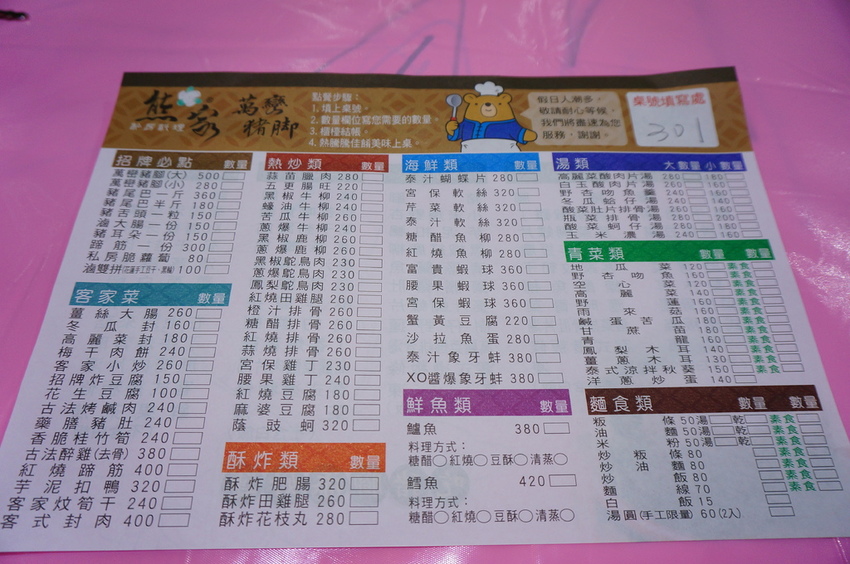 熊家
萬巒
豬腳
點餐步驟：
1. 填上桌號。
2. 數量欄位寫您需要的數量。
3. 櫃檯結帳。
4. 熱騰騰佳餚美味上桌。
假日人潮多，
敬請耐心等候，
我們將盡速為您
服務，謝謝。
桌號填寫處
301
招牌必點 數量
萬巒豬腳(大) 500
萬巒豬腳(小) 280
豬尾巴一斤 360
豬尾巴半斤 180
豬舌頭一粒 150
滷大腸一份 150
豬耳朵一份 150
蹄筋一份 300
私房脆蘿蔔 80
滷雙拼 100
客家菜 數量
薑絲大腸 260
冬瓜封 160
高麗菜封 180
梅干肉餅 240
客家小炒 260
招牌炸豆腐 150
花生豆腐 100
古法烤鹹肉 240
藥膳豬肚 240
香脆桂竹筍 240
古法醉雞(去骨) 380
紅燒蹄筋 400
芋泥扣鴨 320
客家炆筍干 240
客式封肉 400
熱炒類 數量
蒜苗臘肉 280
五更腸旺 220
黑椒牛柳 240
蠔油牛柳 240
苦瓜牛柳 260
蔥爆牛柳 240
黑椒鹿柳 260
蔥爆鹿柳 260
黑椒鴕鳥肉 230
蔥爆鴕鳥肉 230
鳳梨鴕鳥肉 230
紅燒田雞腿 260
橙汁排骨 260
糖醋排骨 260
紅燒排骨 260
蒜燒排骨 260
宮保雞丁 230
腰果雞丁 240
紅燒豆腐 180
麻婆豆腐 180
蔭豉蚵 320
酥炸類 數量
酥炸肥腸 320
酥炸田雞腿 260
酥炸花枝丸 280
海鮮類 數量
泰汁蝴蝶片 280
宮保軟絲 320
芹菜軟絲 320
泰汁軟絲 320
糖醋魚柳 280
紅燒魚柳 280
富貴蝦球 360
腰果蝦球 360
宮保蝦球 360
蟹黃豆腐 220
沙拉魚蛋 280
泰汁象牙蚌 380
XO醬爆象牙蚌 380
鮮魚類 數量
鱸魚 380
料理方式：
糖醋○紅燒○豆酥○清蒸○
鱈魚 420
料理方式：
糖醋○紅燒○豆酥○清蒸○
湯類 大 數量 小 數量
高麗菜酸肉片湯 280 180
白玉酸肉片湯 280 180
野杏吻魚羹 200 160
冬瓜蛤仔湯 240 160
酸菜肚片湯 240 160
瓶菜排骨湯 280 200
酸菜蚵仔湯 280 180
玉米濃湯 240 160
青菜類 數量 數量
地瓜菜 120 素食
野杏吻魚 160 素食
空心菜 120 素食
高麗菜 140 素食
野蓮 160 素食
雨來菇 160 素食
鹹蛋苦瓜 180 素食
甘蔗苗 180 素食
青龍 180 素食
鳳梨木耳 140 素食
薑蔥木耳 130 素食
泰式涼拌秋葵 150 素食
洋蔥炒蛋 140
麵食類 數量 數量
粄條 50 湯 乾 素食
油麵 50 湯 乾 素食
米粉 50 湯 乾 素食
炒粄條 80 素食
炒油麵 80 素食
炒飯 80 素食
麵線 70 素食
白飯 15
湯圓(手工限量) 60(2人)